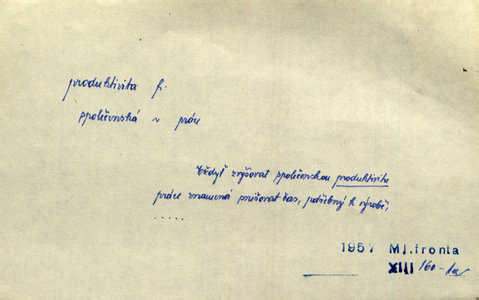 produktivita f.
společenská ~ práce
Vždyť zvyšovat společenskou produktivitu
práce znamená snižovat čas, potřebný k výrobě,
.....
1951 Ml.fronta
XIII 160-1a